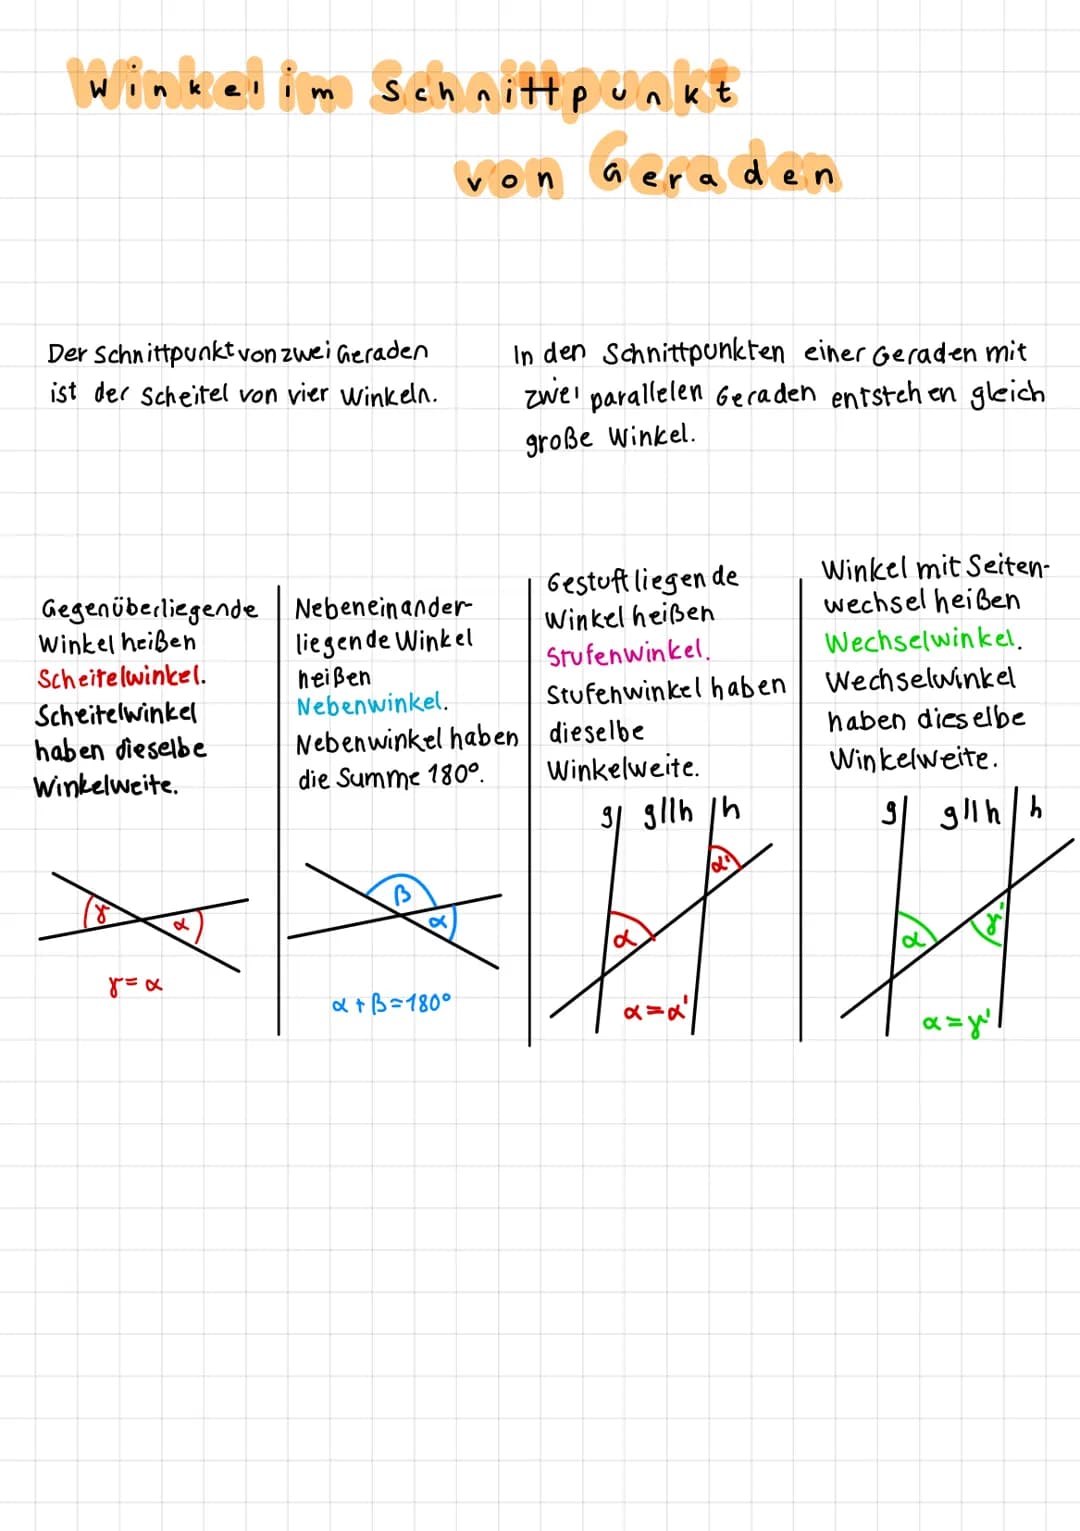 Winkel im Schnittpunkt
von Geraden
Der Schnittpunkt von zwei Geraden
ist der Scheitel von vier Winkeln.
In den Schnittpunkten einer Geraden mit
zwei parallelen Geraden entstehen gleich
große Winkel.
Gegenüberliegende
Winkel heißen
Scheitelwinkel.
Scheitelwinkel
haben dieselbe
Winkelweite.
γ
α
γ = α
Nebeneinander-
liegende Winkel
heißen
Nebenwinkel.
Nebenwinkel haben
die Summe 180°.
β
α
α + β = 180°
Gestuft liegende
Winkel heißen
Stufenwinkel.
Stufenwinkel haben
dieselbe
Winkelweite.
g g||h h
α'
α
α = α'
Winkel mit Seiten-
wechsel heißen
Wechselwinkel.
Wechselwinkel
haben dieselbe
Winkelweite.
g g||h h
α γ'
α = γ'